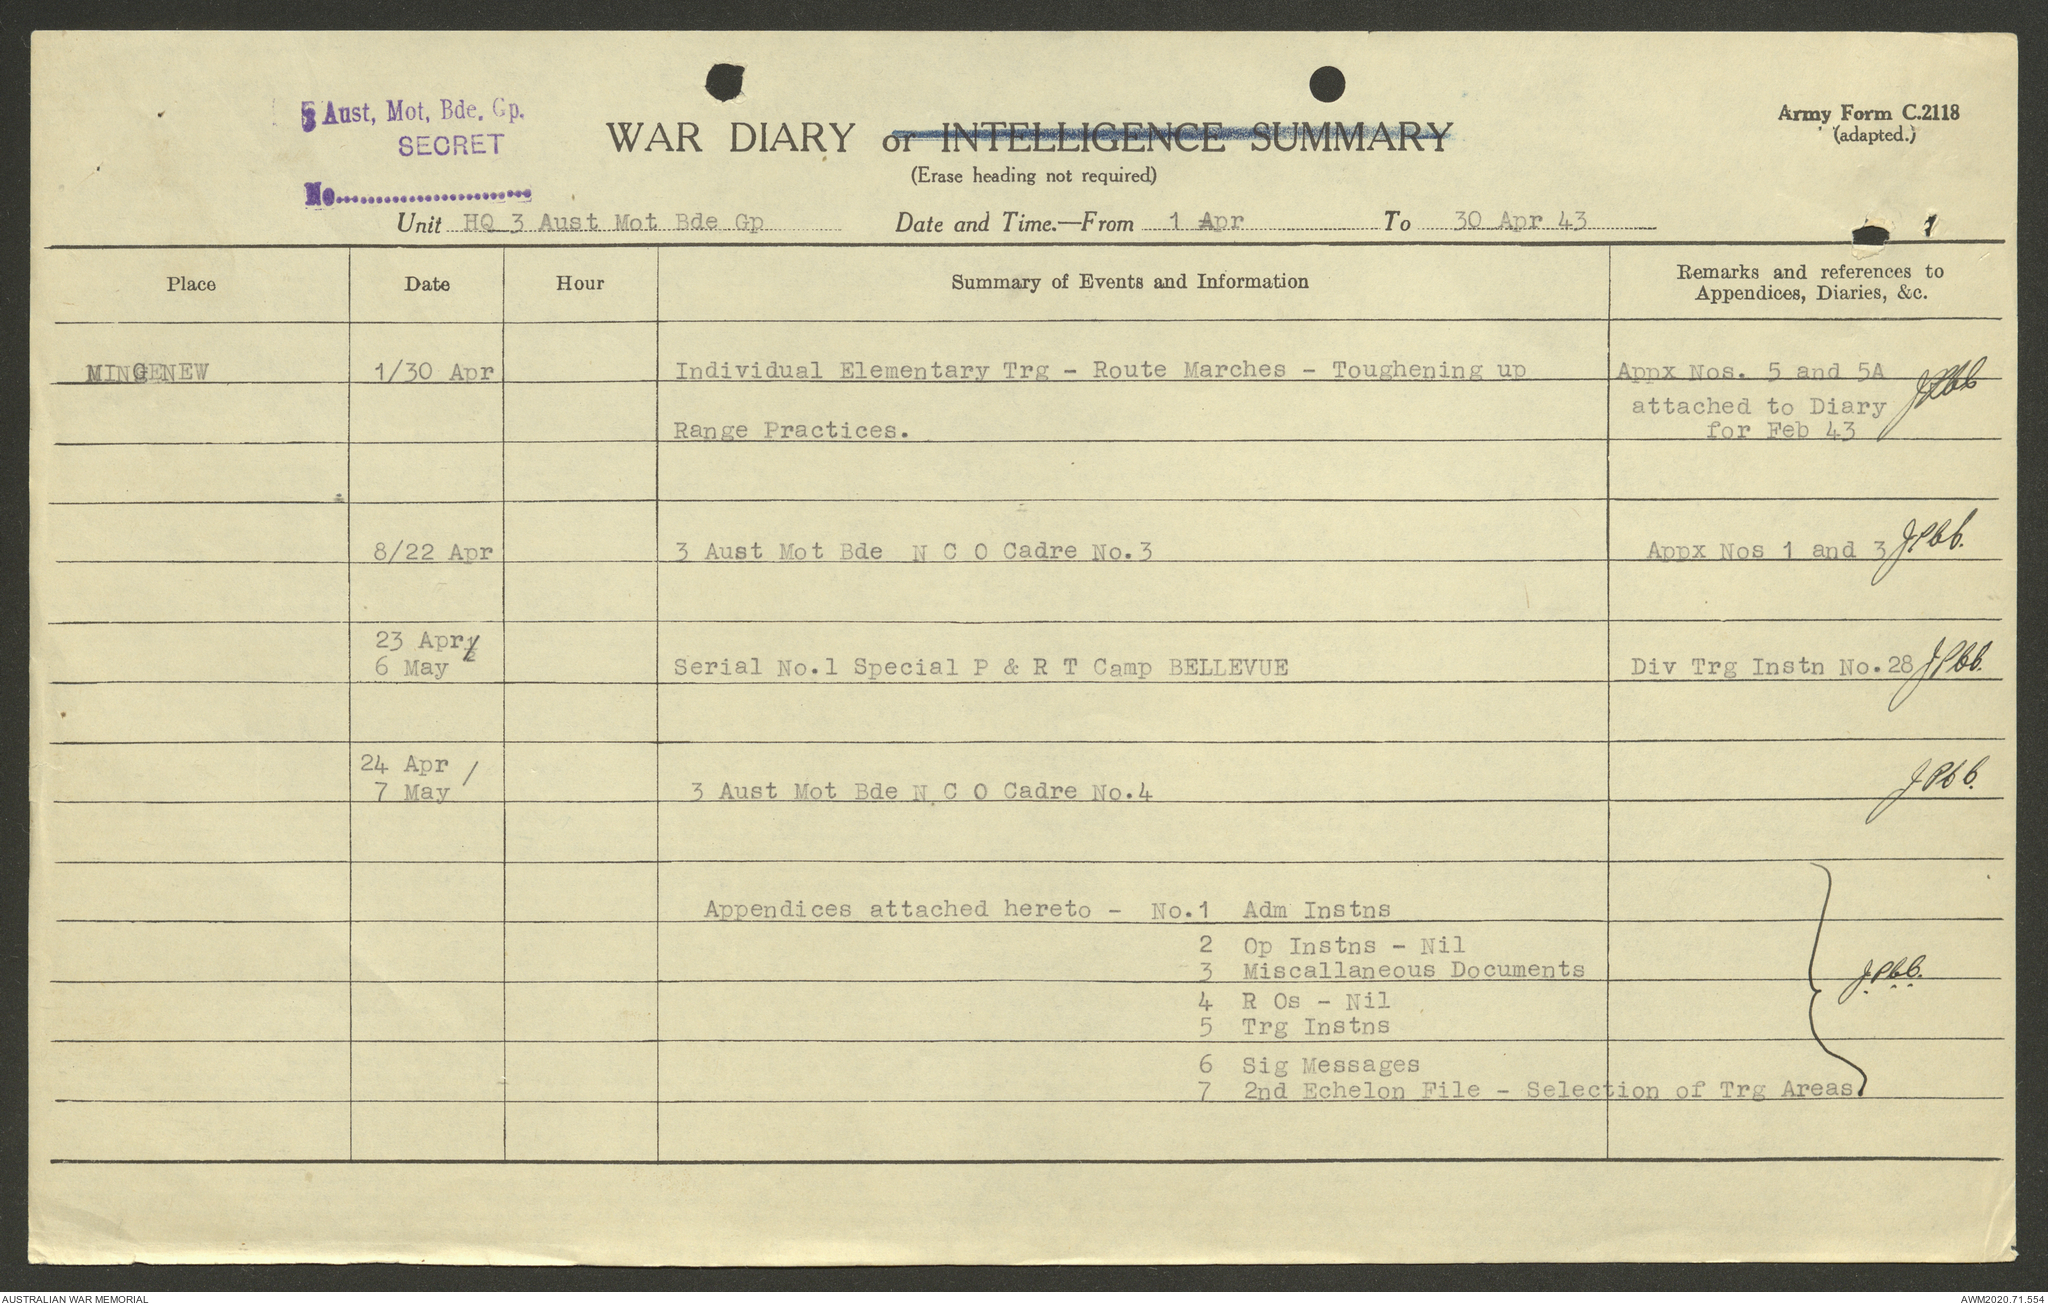 3 Aust, Mot, Bde. Gp.
SECRET
No.
WAR DIARY or INTELLIGENCE SUMMARY
(Erase heading not required)
Army Form C.2118
(adapted.)
Unit HQ 3 Aust Mot Bde Gp Date and Time.—From 1 Apr To 30 Apr 43
1
Place Date Hour Summary of Events and Information Remarks and references to
Appendices, Diaries, &c.
MINGENEW 1/30 Apr Individual Elementary Trg - Route Marches - Toughening up Appx Nos. 5 and 5A
attached to Diary
Range Practices. for Feb 43
8/22 Apr 3 Aust Mot Bde N C O Cadre No.3 Appx Nos 1 and 3
23 Apr/
6 May Serial No.1 Special P & R T Camp BELLEVUE Div Trg Instn No.28
24 Apr /
7 May 3 Aust Mot Bde N C O Cadre No.4
Appendices attached hereto - No.1 Adm Instns
2 Op Instns - Nil
3 Miscallaneous Documents
4 R Os - Nil
5 Trg Instns
6 Sig Messages
7 2nd Echelon File - Selection of Trg Areas.
AUSTRALIAN WAR MEMORIAL
AWM2020.71.554